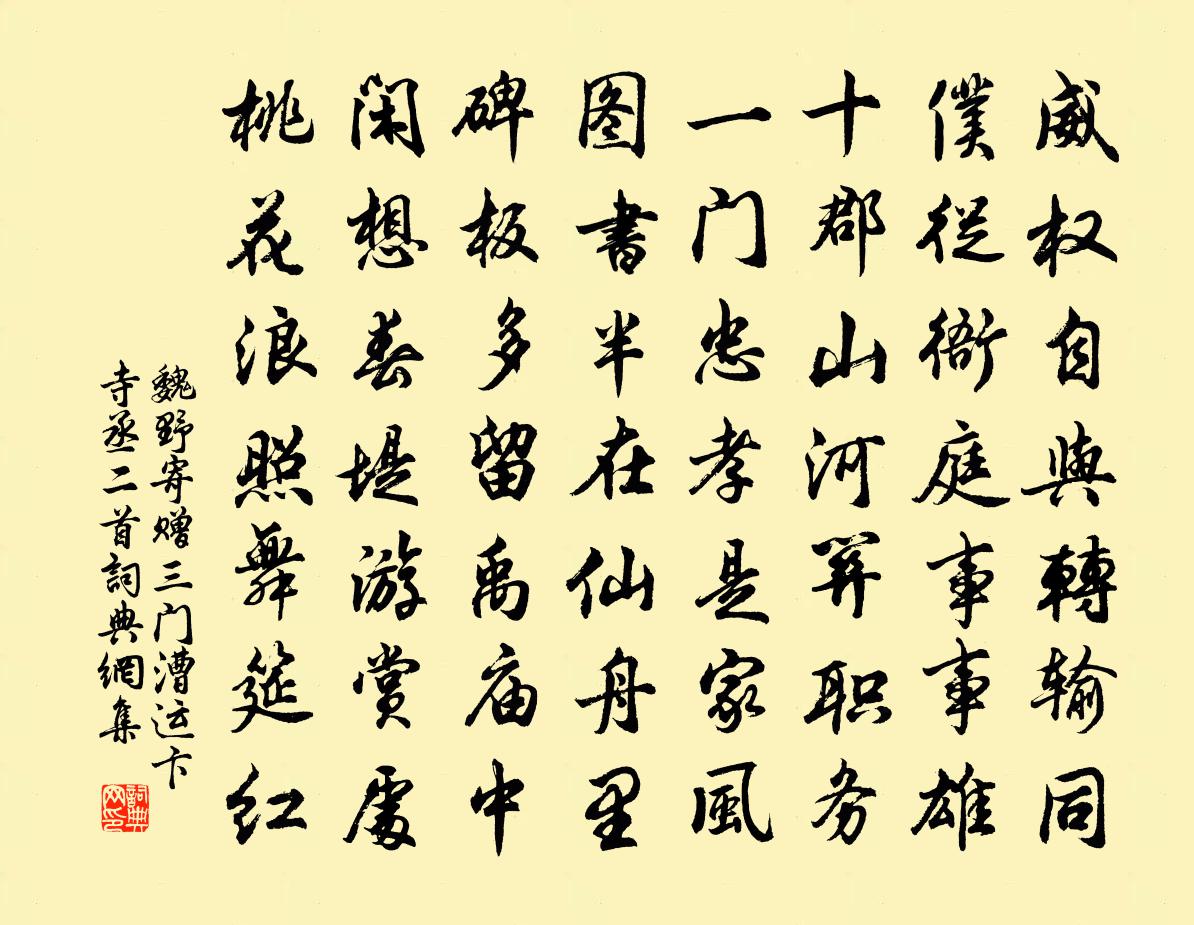 威权自與轉输同
僕從衙庭事事雄
十郡山河并职务
一门忠孝是家風
图書半在仙舟里
碑板多留禹庙中
闲想春堤游赏處
桃花浪照舞筵红
魏野寄赠三门漕运卞
寺丞二首詞典網集
詞典
网印